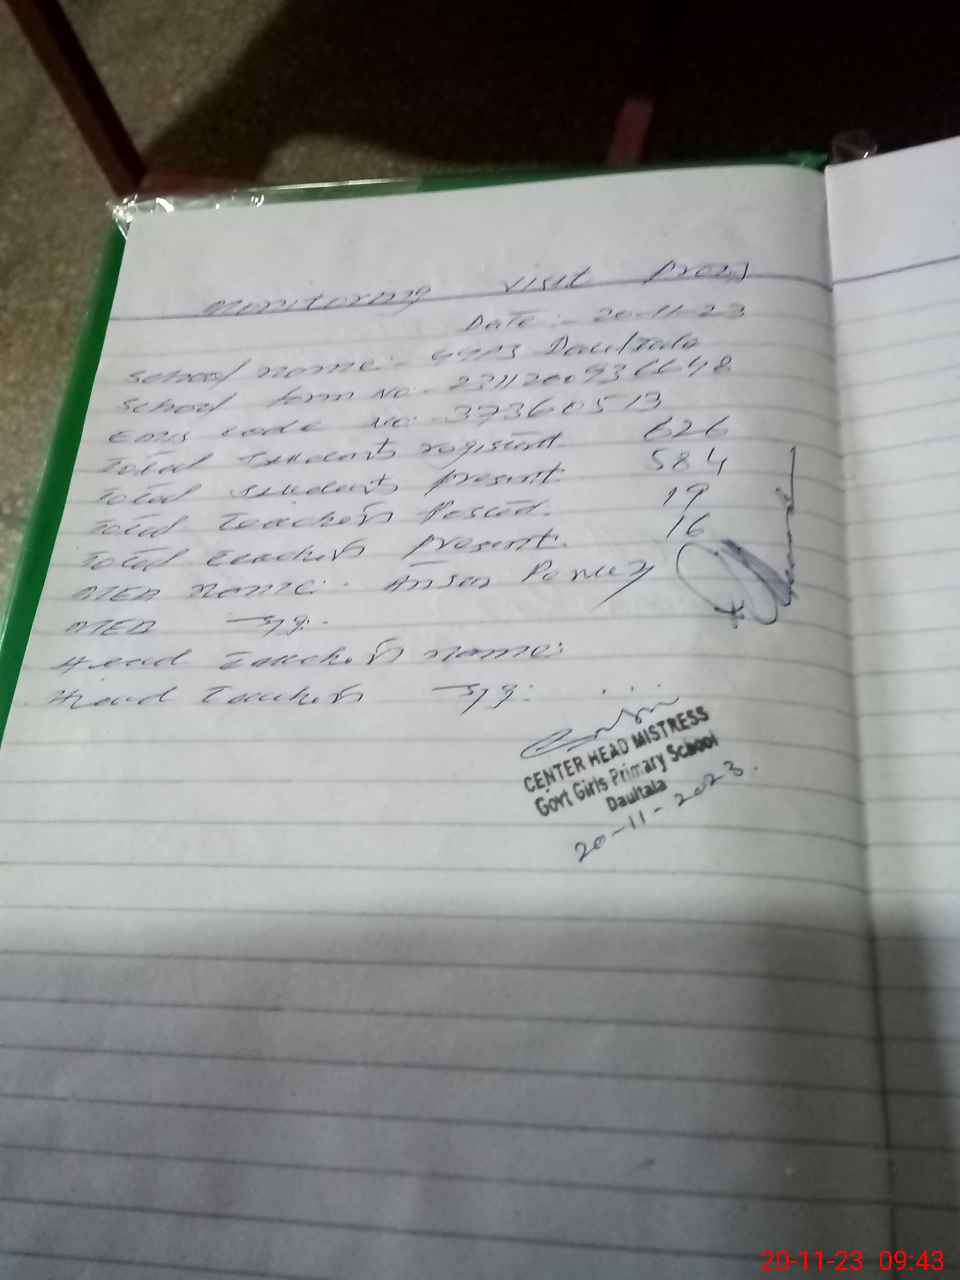 Monitoring Visit Proof
Date :- 20-11-23
School name:- GGPS Daultala
School form No - 2311200936648
EMIS code No:- 37360513
Total Students registerd 626
Total students present: 584
Total Teachers Posted. 19
Total teachers present: 16
MEA Name:- Ansar
MEA Sig:-
Head Teachers name:
Head Teachers Sig: ...
CENTER HEAD MISTRESS
Govt Girls Primary School
Daultala
20-11-2023.
20-11-23 09:43